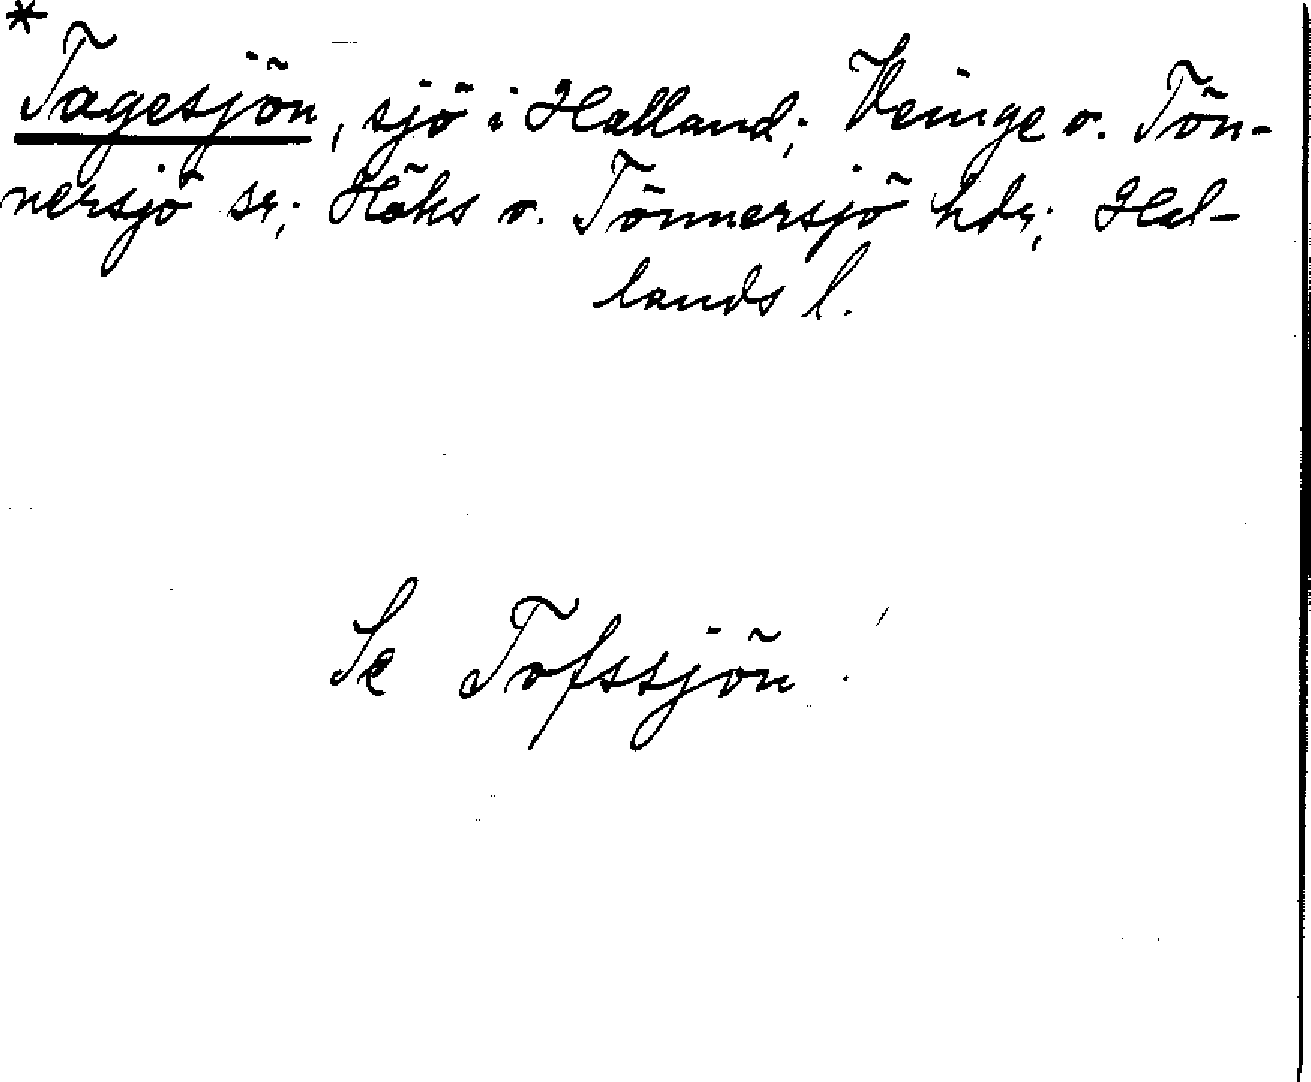 *
Tagesjön, sjö i Halland; Veinge o. Tön-
nersjö sr; Höks o. Tönnersjö hdr; Hal-
lands l.
Se Tofssjön!